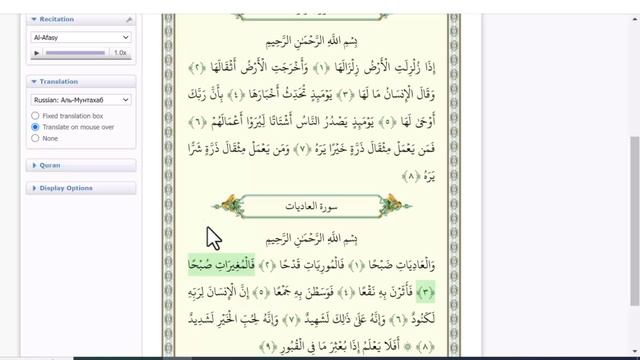 Recitation
Al-Afasy
1.0x
Translation
Russian: Аль-Мунтахаб
Fixed translation box
Translate on mouse over
None
Quran
Display Options
بِسْمِ اللَّهِ الرَّحْمَٰنِ الرَّحِيمِ
إِذَا زُلْزِلَتِ الْأَرْضُ زِلْزَالَهَا ﴿١﴾ وَأَخْرَجَتِ الْأَرْضُ أَثْقَالَهَا ﴿٢﴾
وَقَالَ الْإِنسَانُ مَا لَهَا ﴿٣﴾ يَوْمَئِذٍ تُحَدِّثُ أَخْبَارَهَا ﴿٤﴾ بِأَنَّ رَبَّكَ
أَوْحَىٰ لَهَا ﴿٥﴾ يَوْمَئِذٍ يَصْدُرُ النَّاسُ أَشْتَاتًا لِّيُرَوْا أَعْمَالَهُمْ ﴿٦﴾
فَمَن يَعْمَلْ مِثْقَالَ ذَرَّةٍ خَيْرًا يَرَهُ ﴿٧﴾ وَمَن يَعْمَلْ مِثْقَالَ ذَرَّةٍ شَرًّا
يَرَهُ ﴿٨﴾
سورة العاديات
بِسْمِ اللَّهِ الرَّحْمَٰنِ الرَّحِيمِ
وَالْعَادِيَاتِ ضَبْحًا ﴿١﴾ فَالْمُورِيَاتِ قَدْحًا ﴿٢﴾ فَالْمُغِيرَاتِ صُبْحًا
﴿٣﴾ فَأَثَرْنَ بِهِ نَقْعًا ﴿٤﴾ فَوَسَطْنَ بِهِ جَمْعًا ﴿٥﴾ إِنَّ الْإِنسَانَ لِرَبِّهِ
لَكَنُودٌ ﴿٦﴾ وَإِنَّهُ عَلَىٰ ذَٰلِكَ لَشَهِيدٌ ﴿٧﴾ وَإِنَّهُ لِحُبِّ الْخَيْرِ لَشَدِيدٌ
﴿٨﴾ ۞ أَفَلَا يَعْلَمُ إِذَا بُعْثِرَ مَا فِي الْقُبُورِ ﴿٩﴾